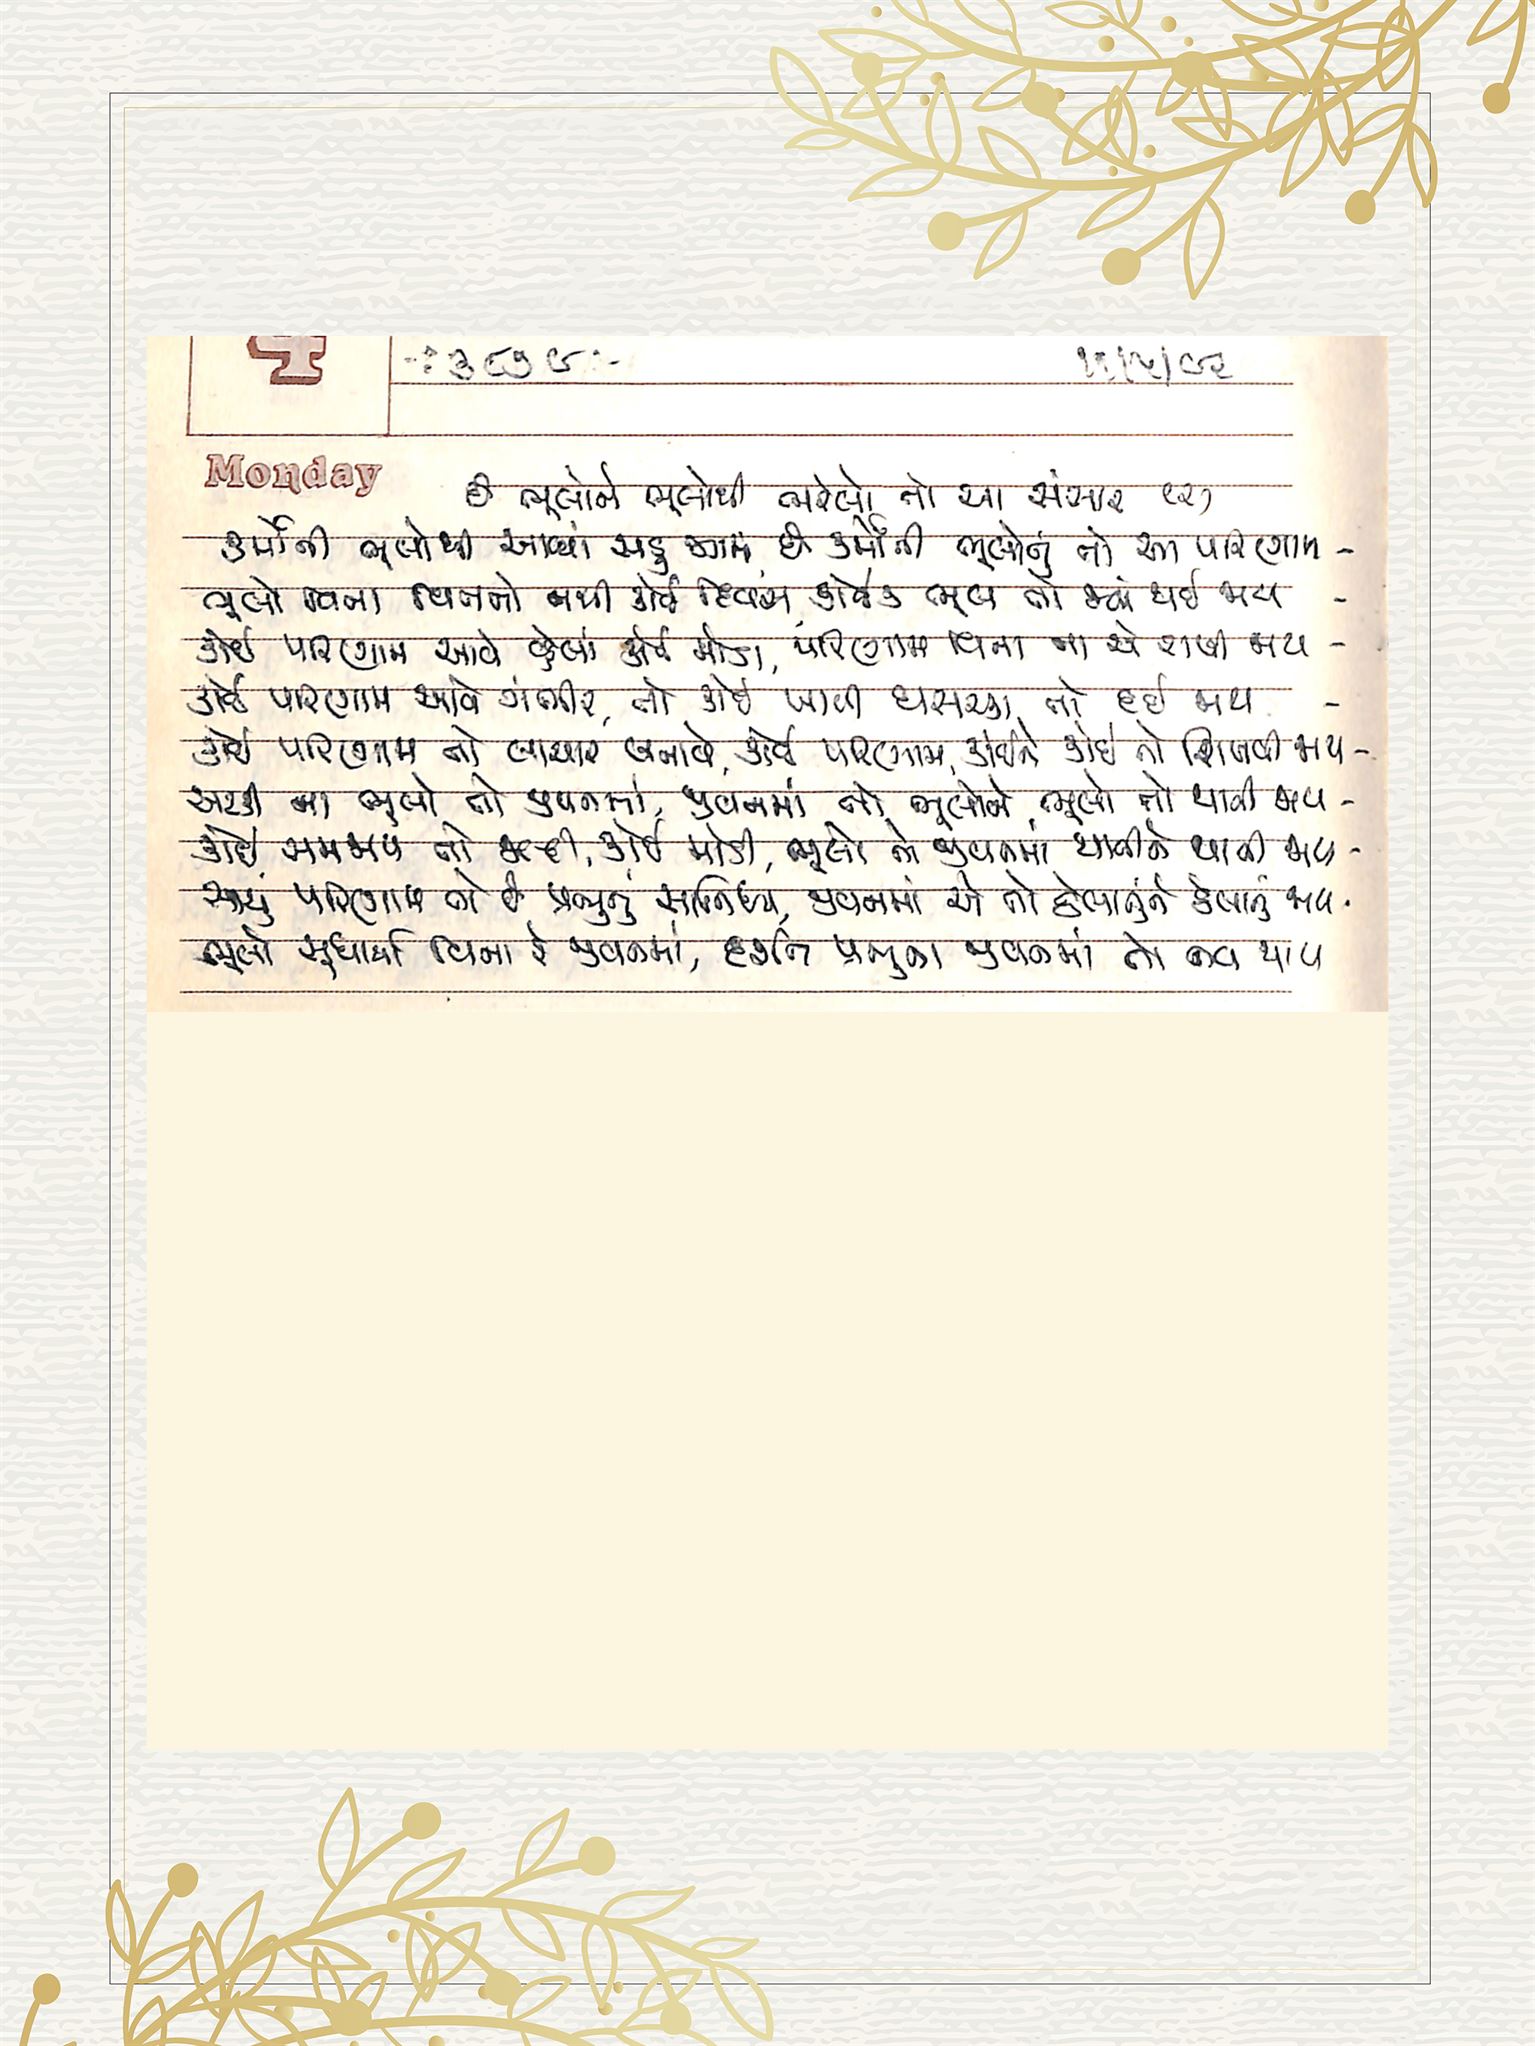 4
-: ૩૮૭૯ :-
Monday
છે ભૂલોને ભૂલોથી ભરેલો તો આ સંસાર (૨)
કર્મોની ભૂલોથી આવ્યા સહુ જગમાં, છે કર્મોની ભૂલોનું તો આ પરિણામ -
ભૂલો વિના વિતતો નથી કોઈ દિવસ, કોઈક ભૂલ તો જ્યાં થઈ જાય -
કોઈ પરિણામ આવે વ્હેલાં કોઈ મોડા, પરિણામ વિના ના એ રાખી જાય -
કોઈ પરિણામ આવે ગંભીર, તો કોઈ ખાલી ઘસરકા તો દઈ જાય -
કોઈ પરિણામ તો લાચાર બનાવે, કોઈ પરિણામ, કોઈને કોઈ તો શિખવી જાય -
અટકી ના ભૂલો તો જીવનમાં, જીવનમાં તો ભૂલોને ભૂલો તો થાતી જાય -
કોઈ સમજાય તો જલ્દી, કોઈ મોડી, ભૂલો તો જીવનમાં થાતીને થાતી જાય -
સાચું પરિણામ તો છે પ્રભુનું સાંનિધ્ય, જીવનમાં એ તો ઠેલાતુંને ઠેલાતું જાય -
ભૂલો સુધાર્યા વિના રે જીવનમાં, દર્શન પ્રભુના જીવનમાં તો નવ થાય